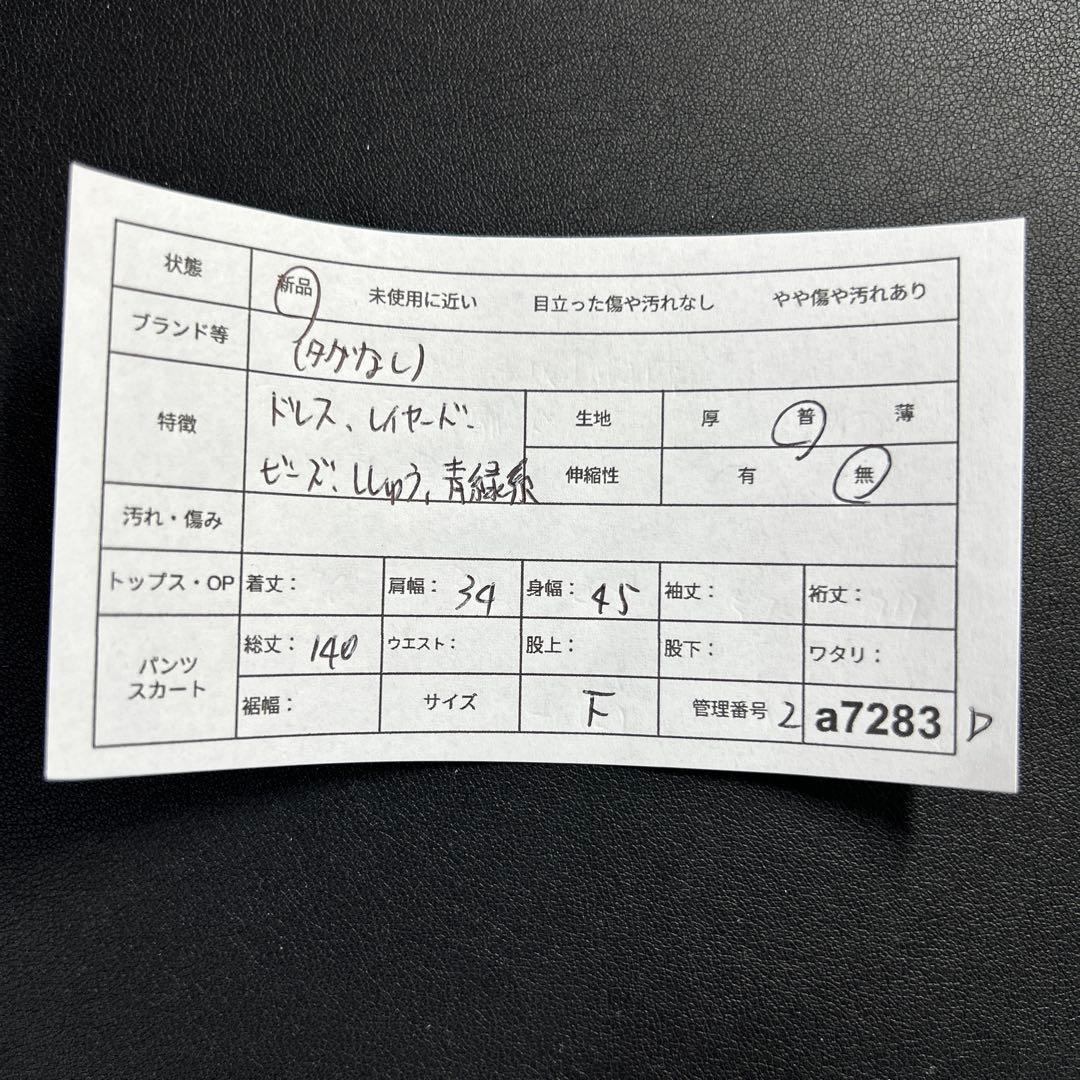 状態 新品 未使用に近い 目立った傷や汚れなし やや傷や汚れあり
ブランド等 (タグなし)
特徴 ドレス、レイヤード、 生地 厚 普 薄
ビーズ、ししゅう、青緑系 伸縮性 有 無
汚れ・傷み
トップス・OP 着丈: 肩幅: 34 身幅: 45 袖丈: 裄丈:
パンツ スカート 総丈: 140 ウエスト: 股上: 股下: ワタリ:
裾幅: サイズ 下 管理番号 2 a7283 D